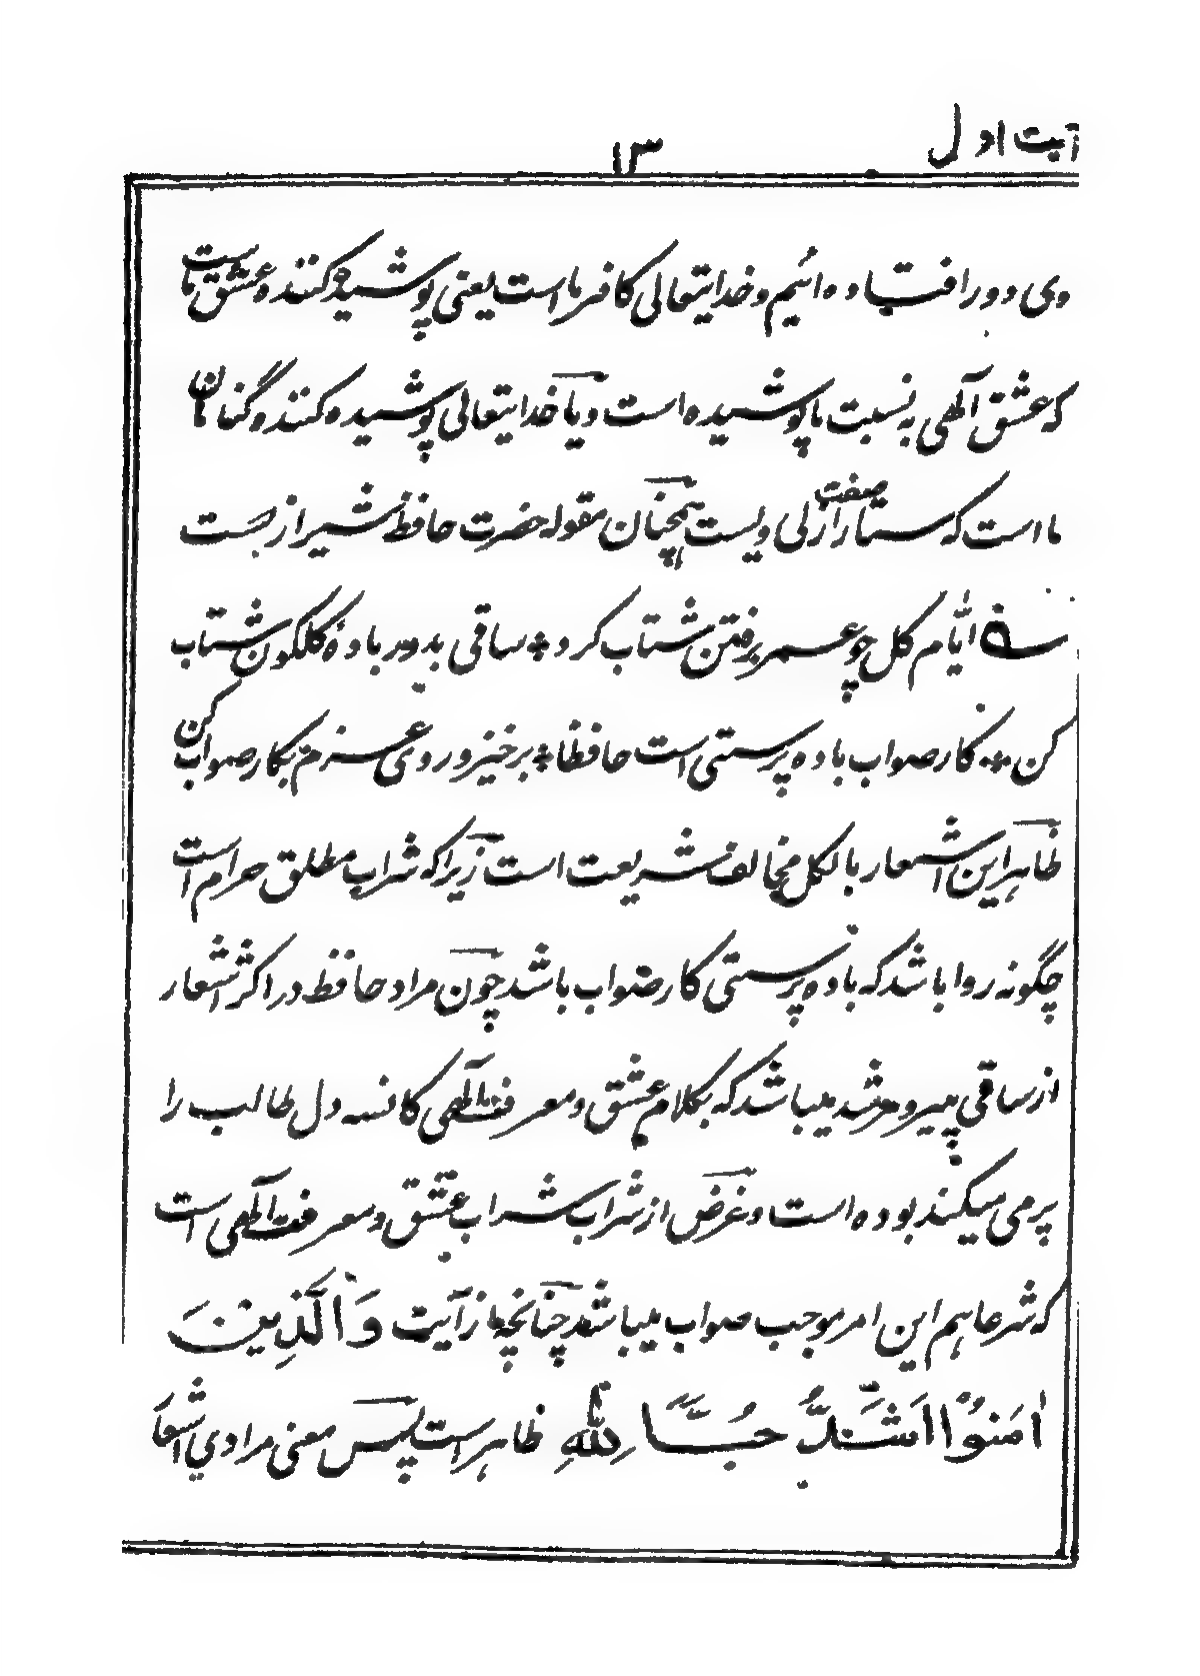 آیت اول
۱۳
وی دور افتاده ائیم و خدایتعالی کافر ما است یعنی پوشیده کننده عشق ماست
که عشق الٰهی به نسبت ما پوشیده است و یا خدایتعالی پوشیده کننده گناهان
ما است که ستاراز صفت لی ویست همچنان مقوله حضرت حافظ شیرازیست
ایّام گل چو عمر برفتن شتاب کرد * ساقی بدور بادهٔ گلگون شتاب
کن * کار صواب باده پرستی است حافظا * برخیز و روی عزم بکار صواب کن
ظاهر این اشعار بالکل مخالف شریعت است زیرا که شراب مطلق حرام است
چگونه روا باشد که باده پرستی کار صواب باشد چون مراد حافظ در اکثر اشعار
از ساقی پیر و مرشد میباشد که بکلام عشق و معرفت الٰهی کاسه دل طالب را
پر می میکنند بوده است و غرض از شراب شراب عشق و معرفت الٰهی است
که شرعا هم این امر موجب صواب میباشد چنانچه از آیت وَالَّذِینَ
اٰمَنُوْا اَشَدُّ حُبًّا لِلّٰهِ ظاهر است پس معنی مرادی اشعا